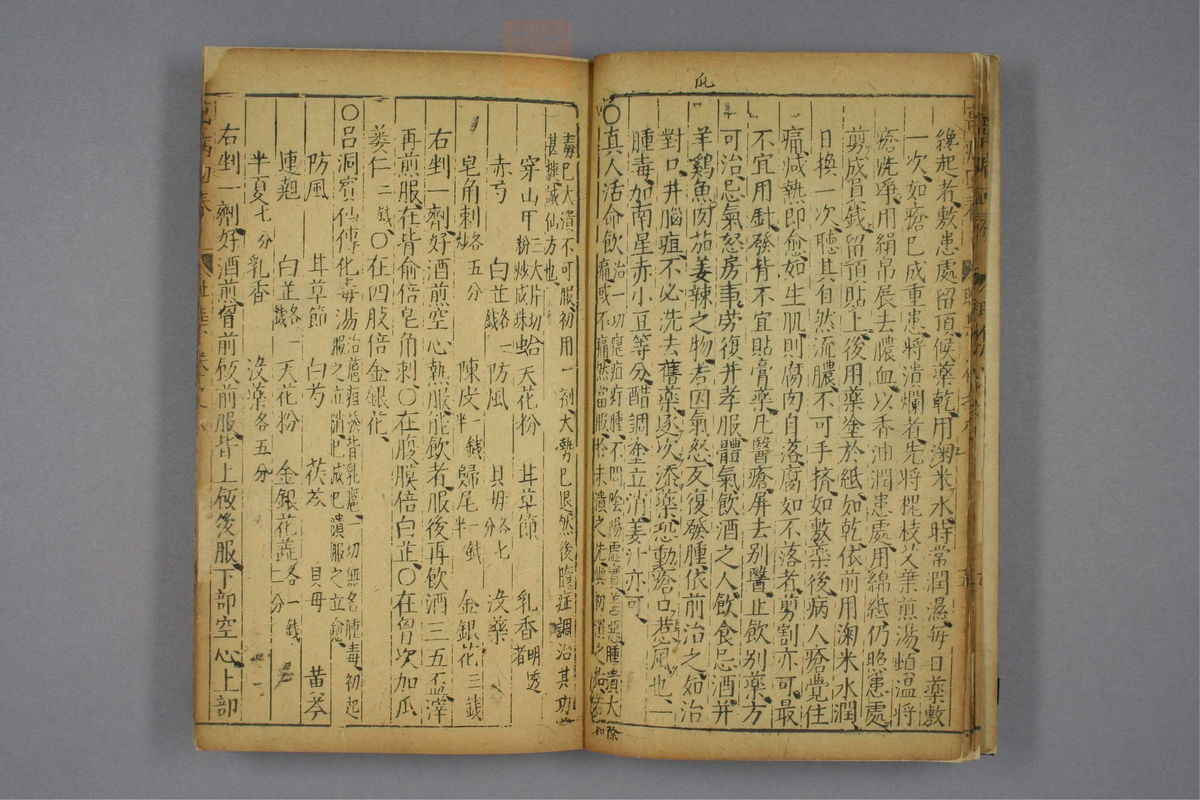 瓜
後起者敷患處留頂候藥乾用淘米水時常潤濕每日藥敷
一次如瘡已成重患將潰爛者先將槐枝艾葉煎湯蛆溫將
瘡洗凈用絹帛展去膿血以香油潤患處用綿紙仍照患處
剪成冐錢留頂貼上後用藥塗於紙如乾依前用淘米水潤
日換一次聽其自然流膿不可手擠如敷藥後病人瘡覺住
痛减熱即愈如生肌則腐肉自落腐如不落者剪割亦可最
不宜用針發背不宜貼膏藥凡醫瘡屏去别醫止飲别藥方
可治忌氣怒房事劳復并孝服體氣飲酒之人飲食忌酒并
羊鷄魚肉茄姜辣之物若因氣怒反復發腫依前治之如治
對口并腦疽不必洗去舊藥逐次添藥恐動瘡口惹風也一
腫毒加南星赤小豆等分醋調塗立消姜汁亦可
○真人活命飲治一切瘡疽疔腫不問陰陽虛實善惡腫潰大
痛或不痛然當服於未潰之先與初潰之
毒巳大潰不可服初用一剂大勢已退然後隨症調治其功
甚捷誠仙方也
穿山甲三大片切粉炒成珠 天花粉 甘草節 乳香明透者
赤芍 白芷各一錢 防風 貝母各七分 沒藥
皂角刺各五分 陳皮 歸尾 金銀花三錢
右剉一劑好酒煎空心熱服能飲者服後再飲酒三五盃滓
再煎服在背俞倍皂角刺○在腹膜倍白芷○在胷次加瓜
蔞仁二錢○在四肢倍金銀花
○吕洞賓仙傳化毒湯治癰疽發背乳癰一切無名腫毒初起
服之立消已成已潰服之立愈
防風 甘草節 白芍 茯苓 貝母 黄芩
連翹 白芷各一錢 天花粉 金銀花各一錢二分
半夏七分 乳香 没藥各五分
右剉一劑好酒煎胷前攸前服背上攸後服下部空心上部